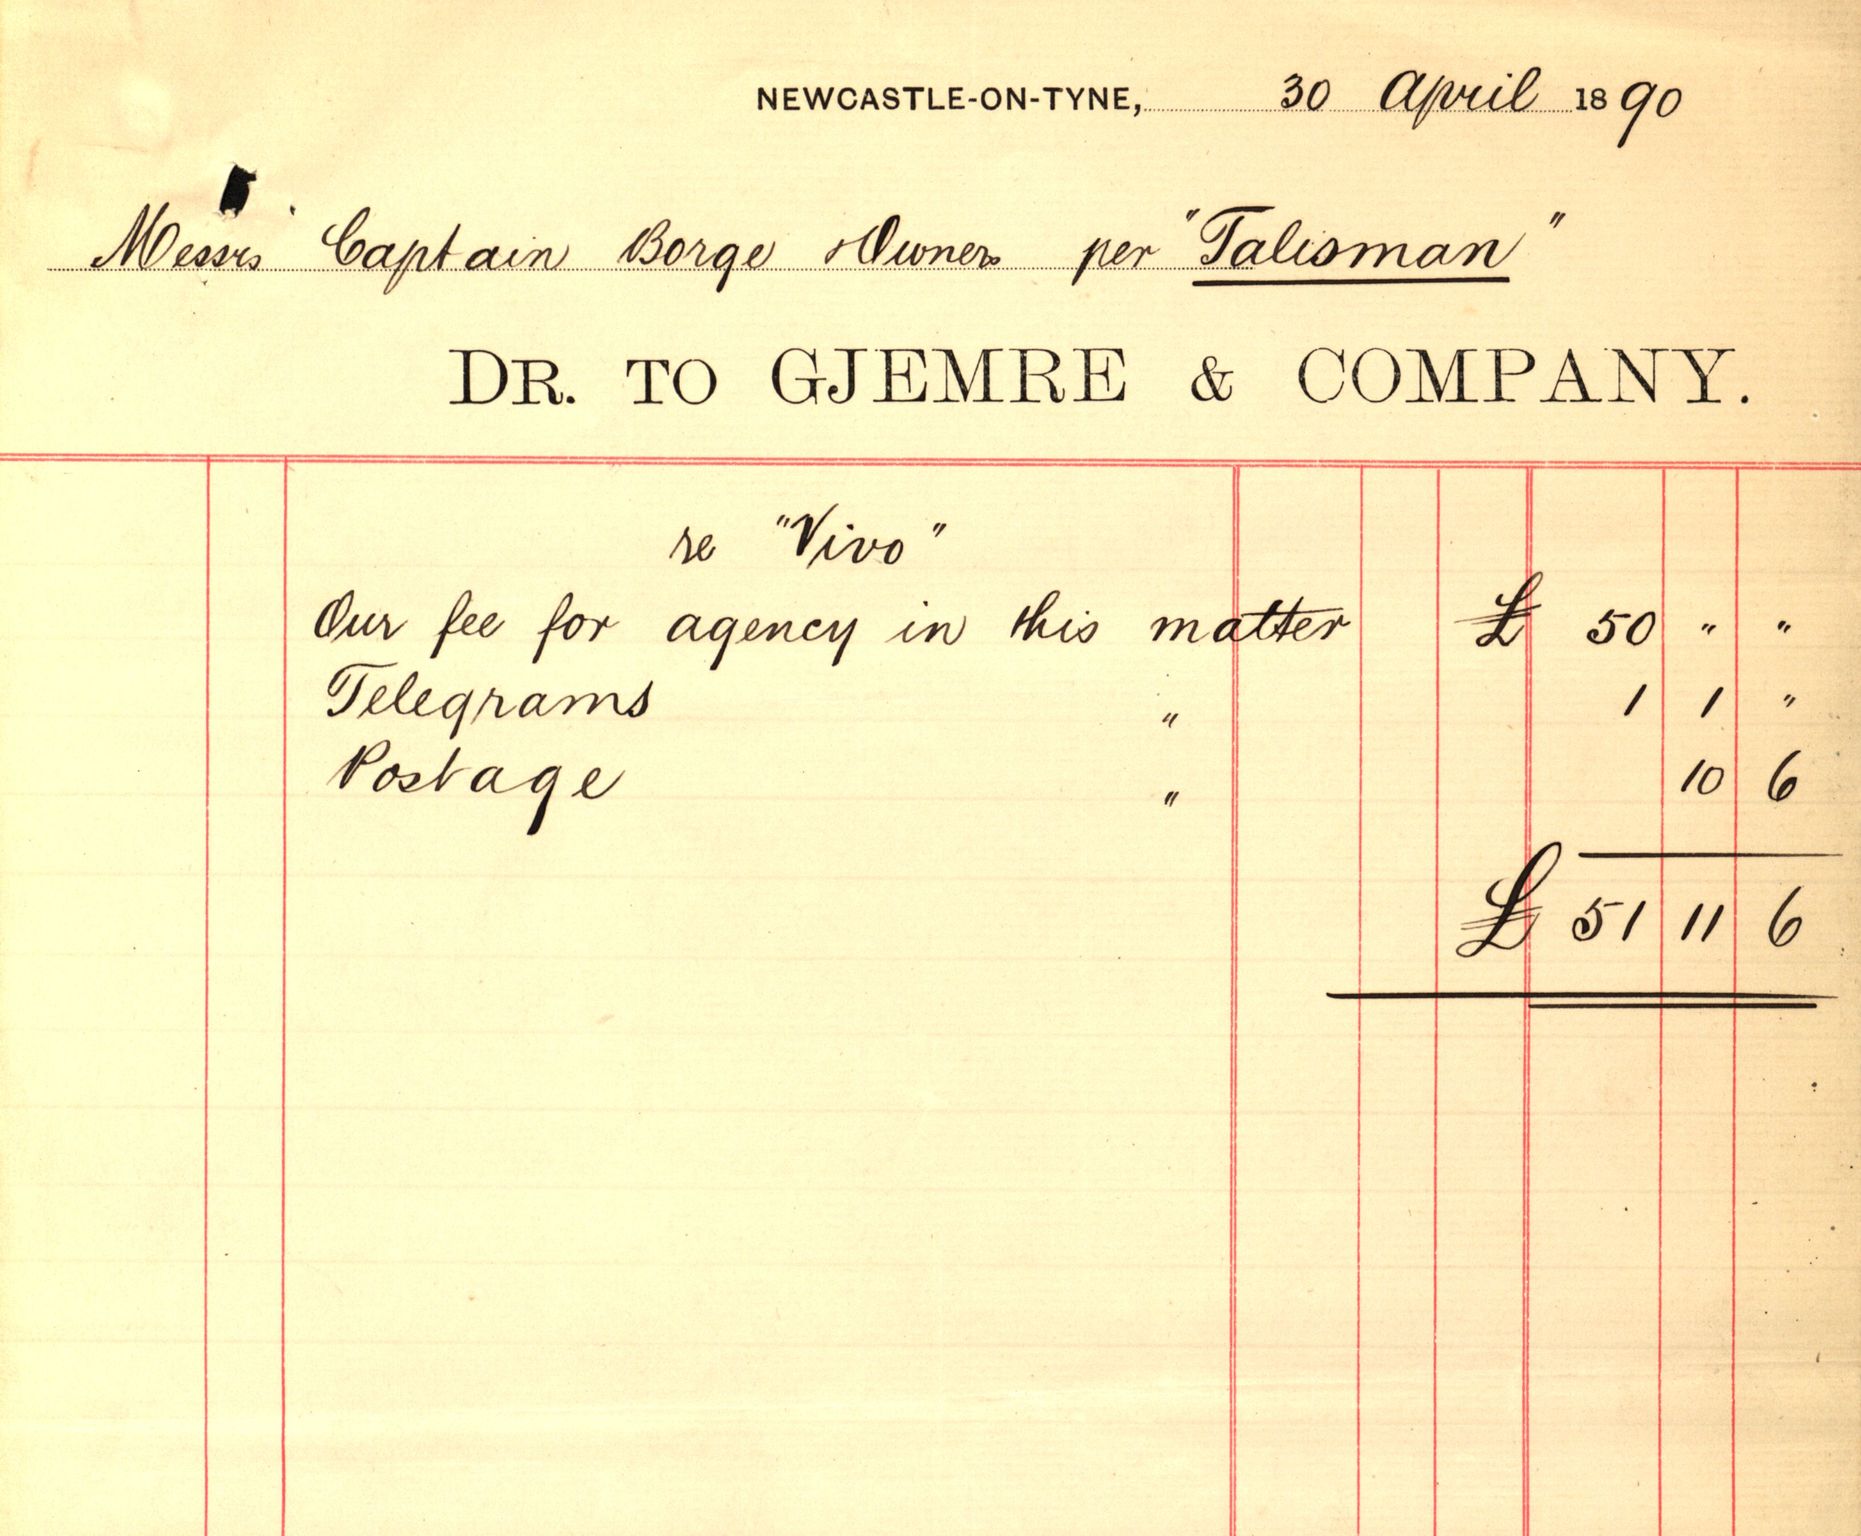 NEWCASTLE-ON-TYNE, 30 April 1890
Messrs Captain Borge & Owners per "Talisman"
DR. TO GJEMRE & COMPANY.
re "Vivo"
Our fee for agency in this matter £ 50 " "
Telegrams " 1 1 "
Postage " 10 6
£ 51 11 6